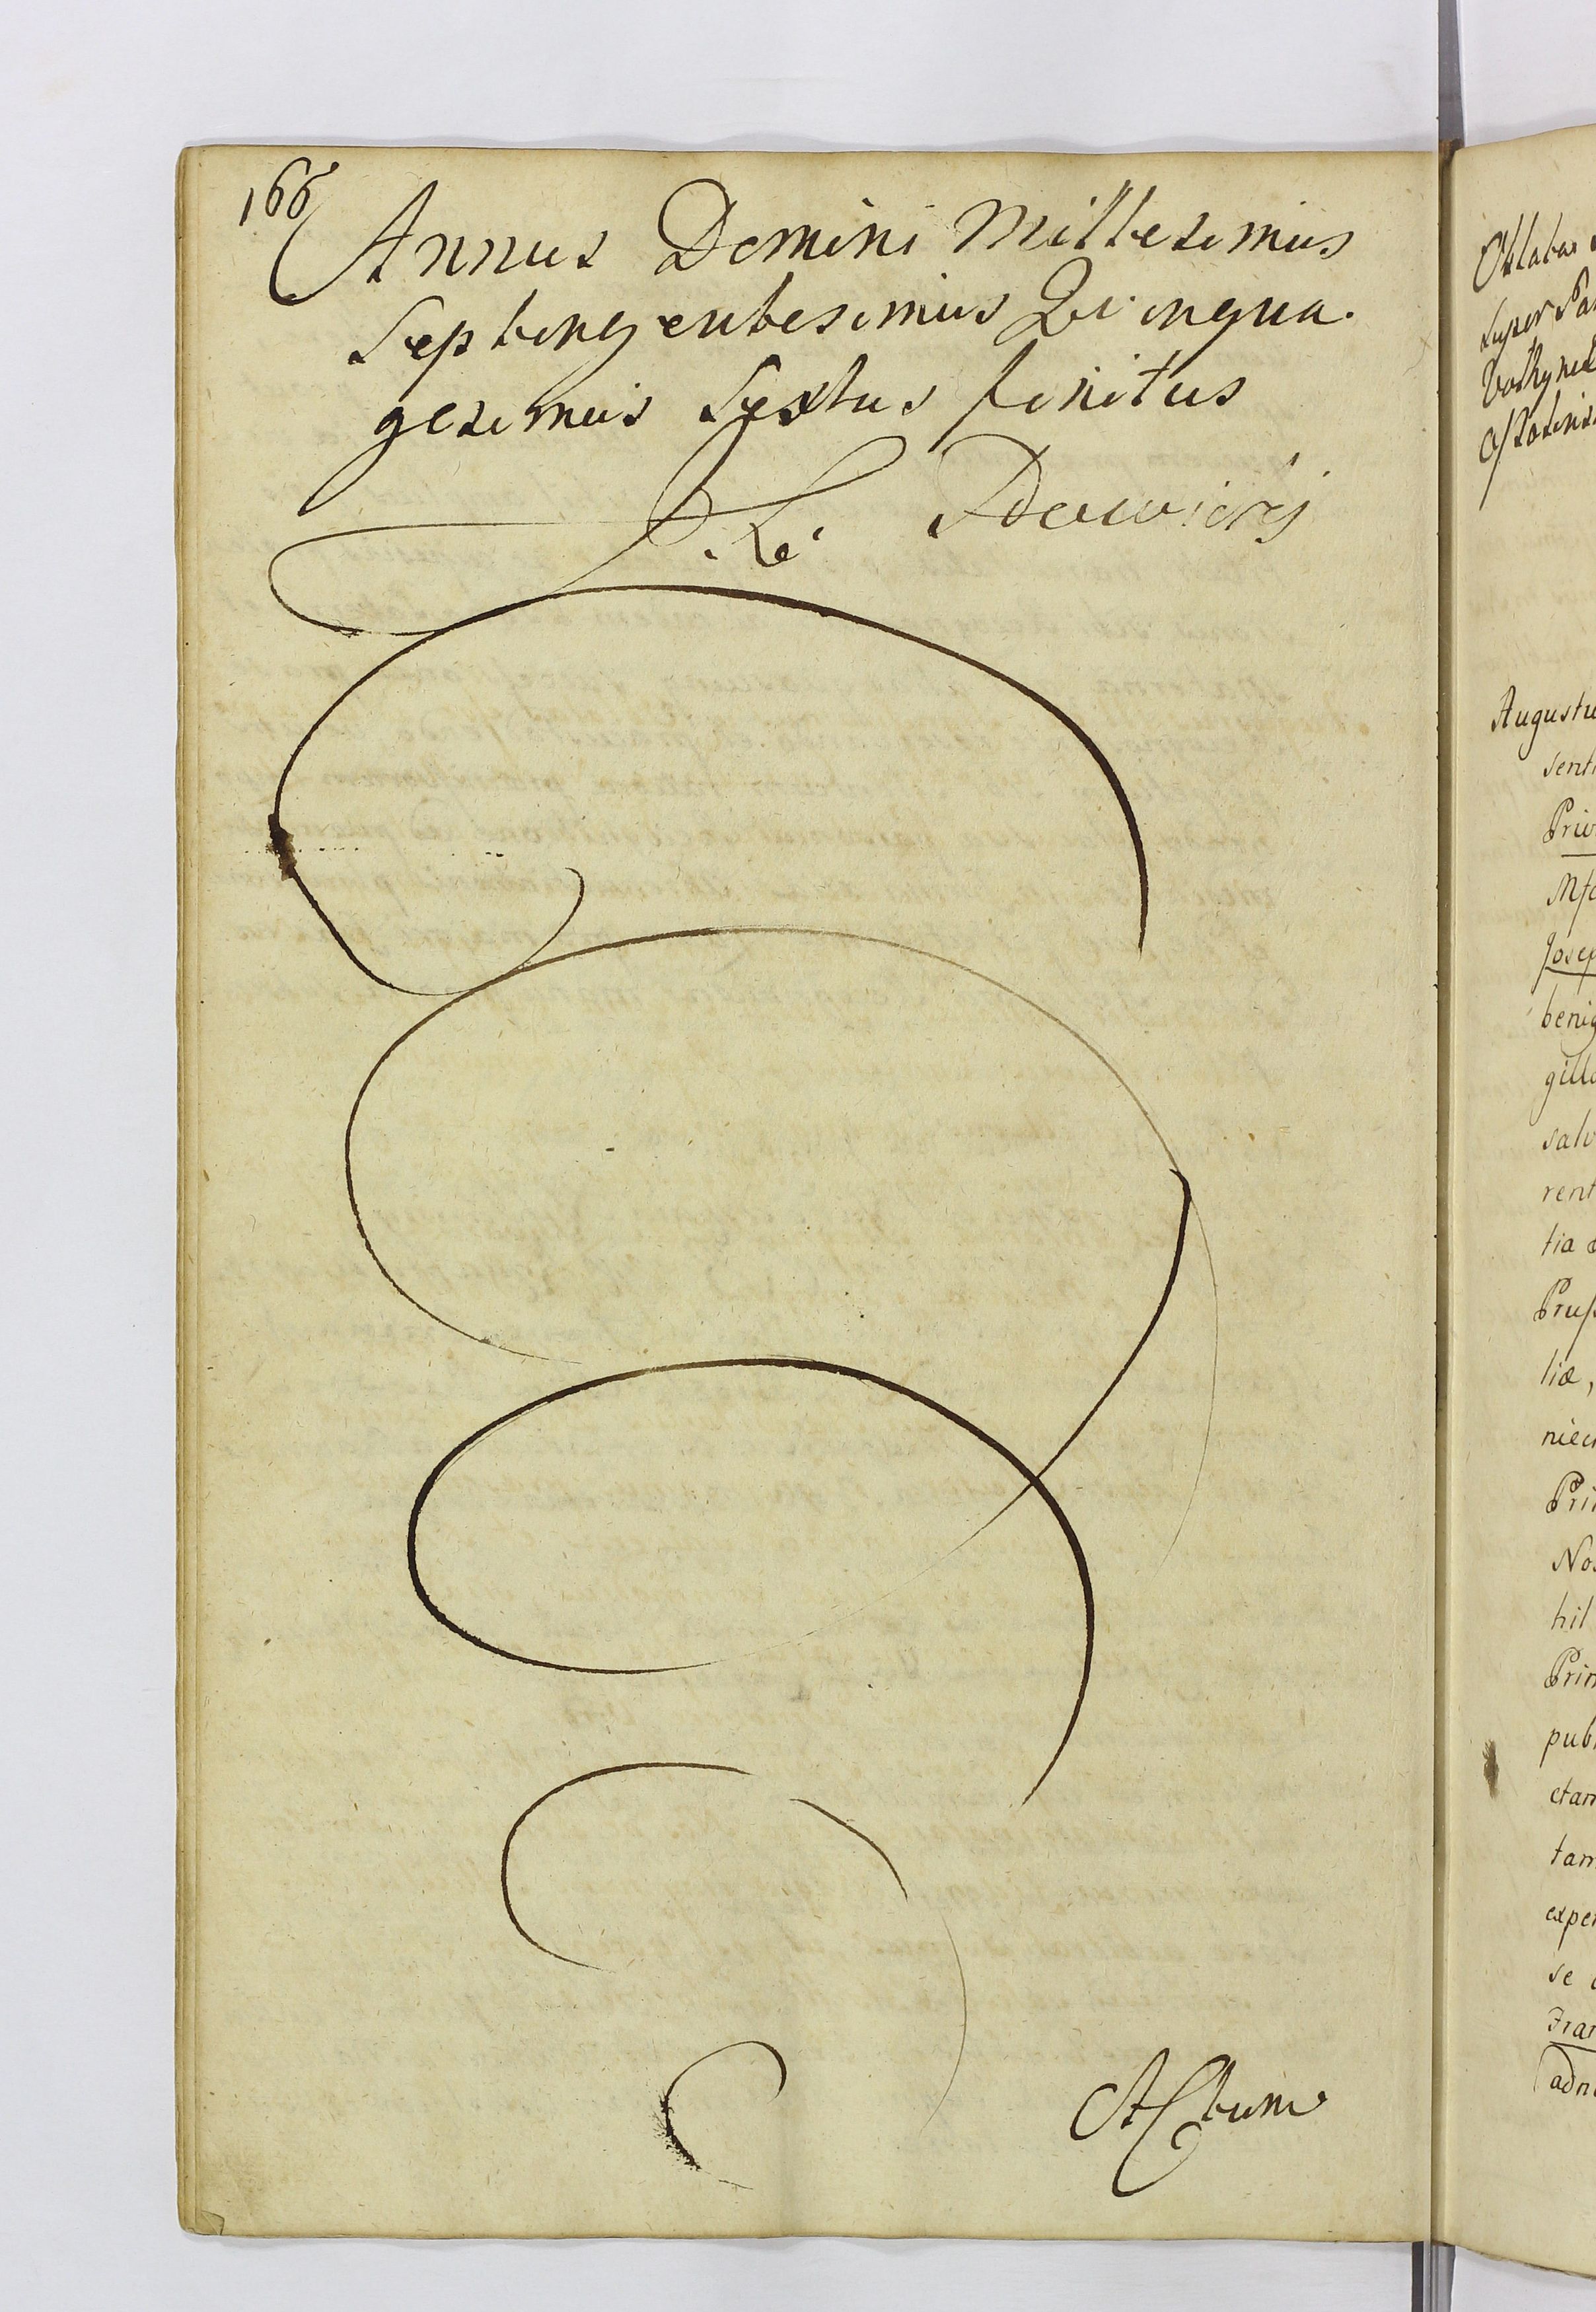 166
Annus Domini Millesimus
Septingentesimus Quinqua.
gesimus Sextus finitus
Actum
Oblatae
super
Augustu
senti
Priv
Josep
benig
gilla
salv
rent
tia
Pruſ
liæ,
niec
Pri
Nos
hil
Prin
pub
etam
tam
exper
se
Fran
adn